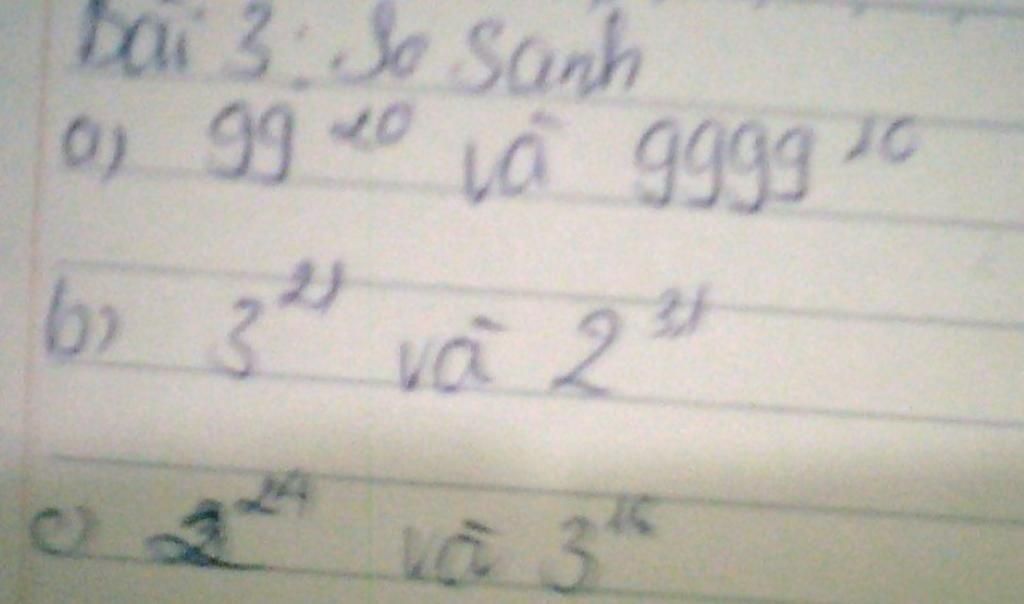 Bài 3: So Sanh
a) 99²⁰ và 9999¹⁰
b) 3²¹ và 2³¹
c) 2²⁴ và 3¹⁶